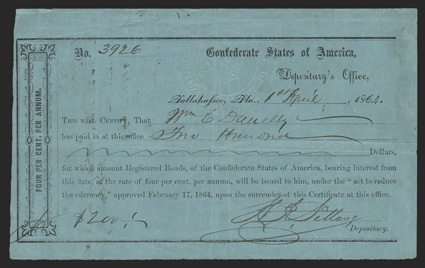 No. 3926
Confederate States of America,
Depositary's Office,
Tallahassee, Fla., 1st April, 1864.
THIS WILL CERTIFY, That Wm E Danelly
has paid in at this office Two Hundred
Dollars,
for which amount Registered Bonds, of the Confederate States of America, bearing interest from
this date, at the rate of four per cent. per annum, will be issued to him, under the "act to reduce
the currency," approved February 17, 1864, upon the surrender of this Certificate at this office.
$200
Depositary.
FOUR PER CENT. PER ANNUM.